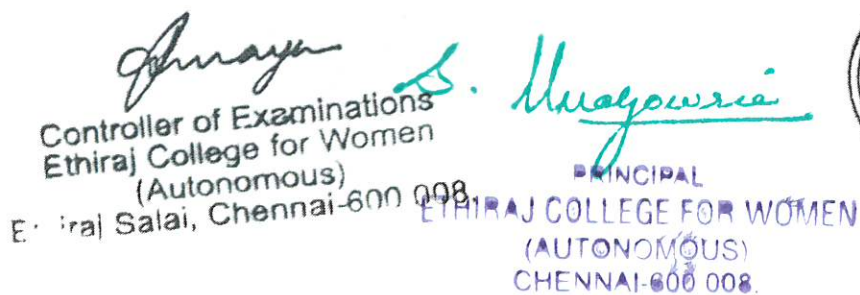 Controller of Examinations
Ethiraj College for Women
(Autonomous)
Salai, Chennai-600 008.
S. Umagowrie
PRINCIPAL
ETHIRAJ COLLEGE FOR WOMEN
(AUTONOMOUS)
CHENNAI-600 008.